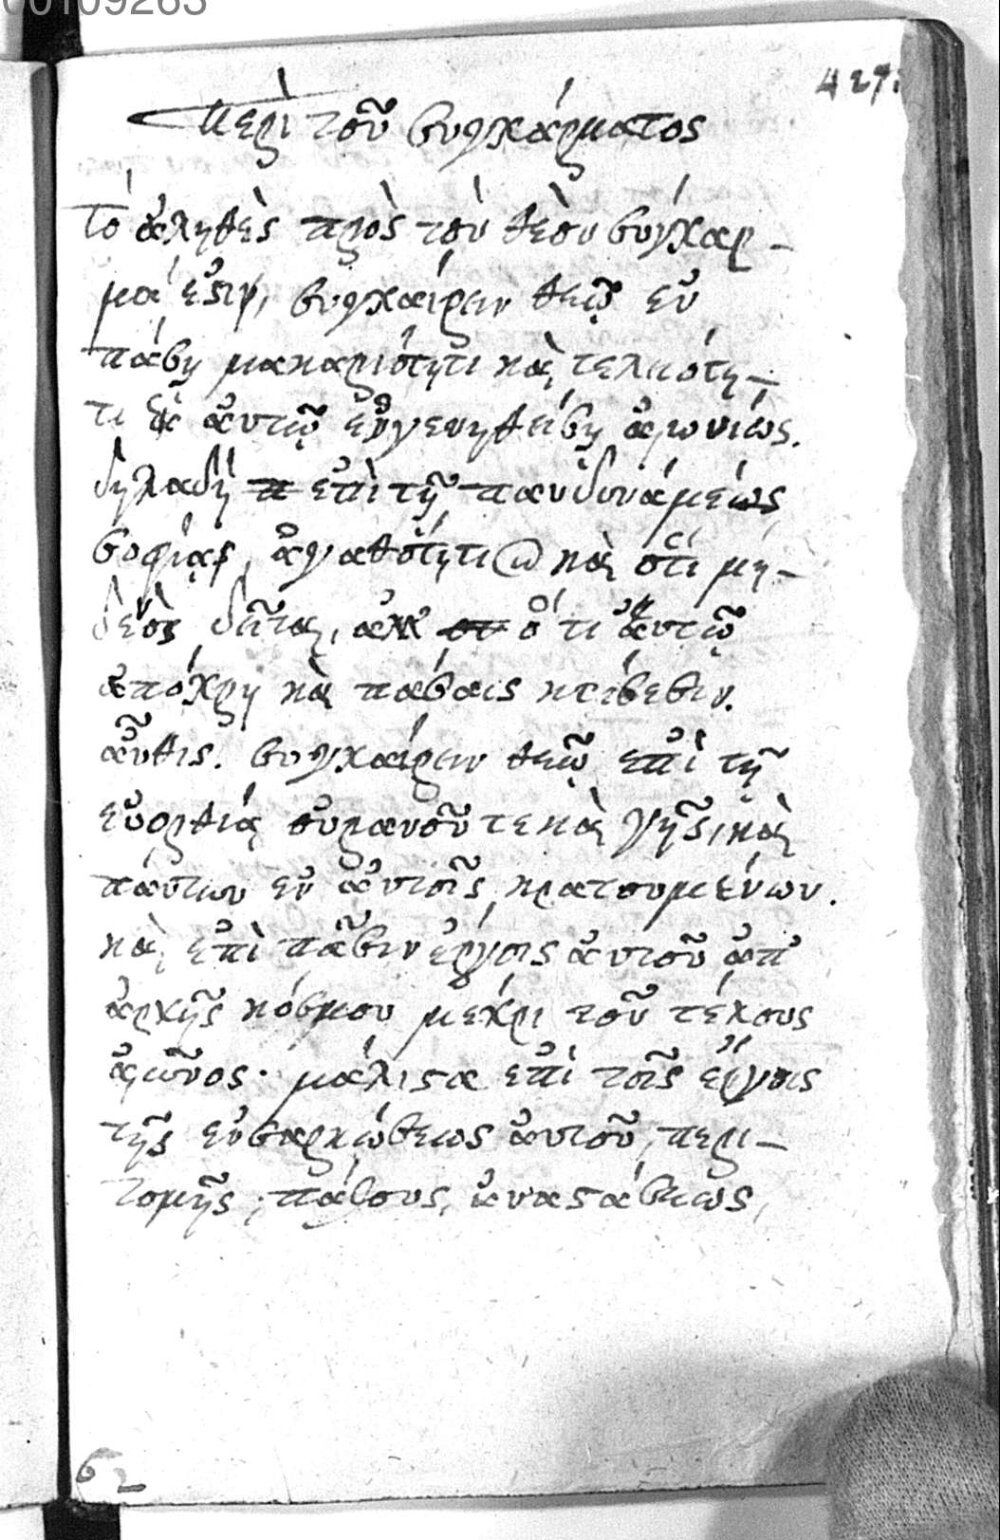 00109263
427.
Περὶ τοῦ συγχάρματος
Τὸ ἀληθὲς πρὸς τὸν θεὸν σύγχαρ-
μά ἐστιν, συγχαίρειν θεῷ ἐν
πάσῃ μακαριότητι καὶ τελειότη-
τι αὐτῷ ἐνγενηθείσῃ αἰωνίως.
δηλαδὴ ἐπὶ τῇ πανδυνάμεως
σοφίας, ἀγαθότητι καὶ ὅτι μη-
δενὸς δεῖται, ἀλλ' ὅτι αὐτῷ
ἀπόχρη καὶ πάσαις κτίσεσιν.
αὖθις. συγχαίρειν θεῷ ἐπὶ τῇ
εὐορθίᾳ οὐρανοῦ τε καὶ γῆς, καὶ
πάντων ἐν αὐτοῖς κρατουμένων.
καὶ ἐπὶ πᾶσιν ἔργοις αὐτοῦ ἀπ'
ἀρχῆς κόσμου μέχρι τοῦ τέλους
αἰῶνος· μάλιστα ἐπὶ τοῖς ἔργοις
τῆς ἐνσαρκώσεως αὐτοῦ, περι-
τομῆς, πάθους, ἀναστάσεως,
62